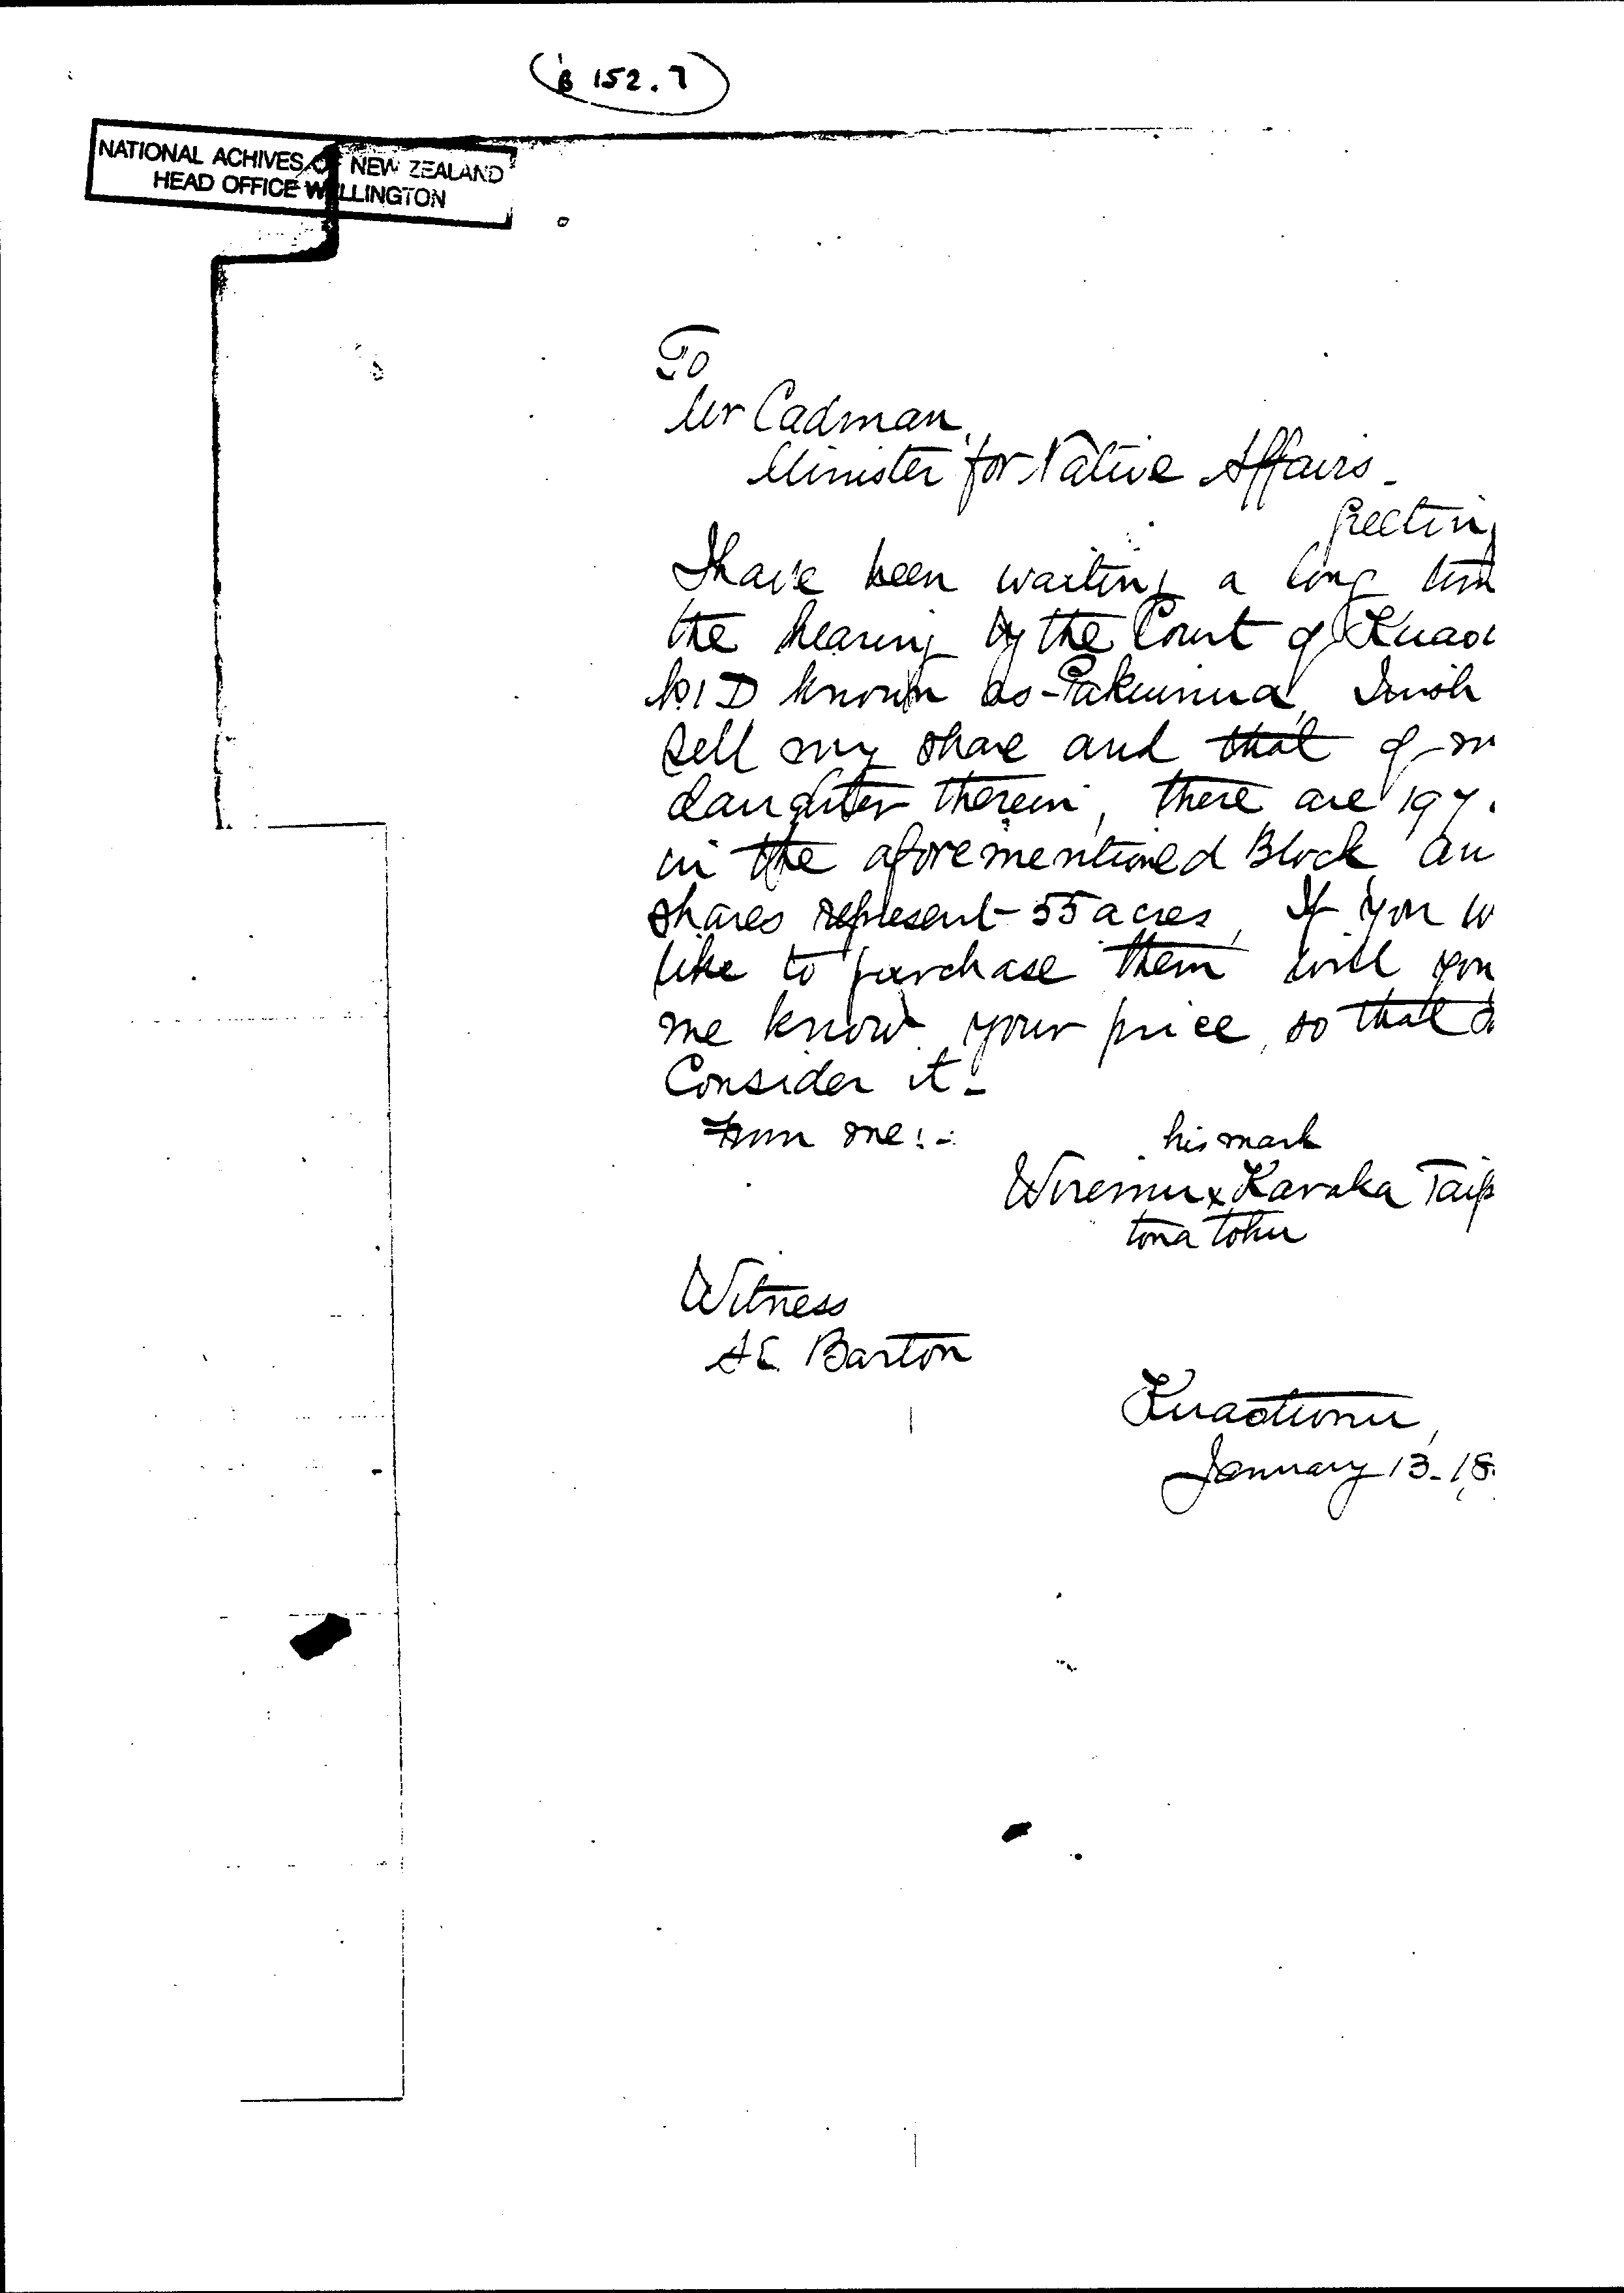 B 152.7
NATIONAL ACHIVES OF NEW ZEALAND
HEAD OFFICE WELLINGTON
To
Mr Cadman,
Minister for Native Affairs -
Greeting
I have been waiting a long tim
the hearing by the Court of Kuaot
No. 1 D known as Pakuinua, I wish
sell my share and that of m
daughter therein, there are 197.
in the aforementioned Block an
shares represent 55 acres, If you w
like to purchase them will you
me know your price, so that I
Consider it -
From me:-
his mark
Wiremu x Karaka Taip
tona tohu
Witness
AE Barton
Kuaotunu,
January 13 - 18